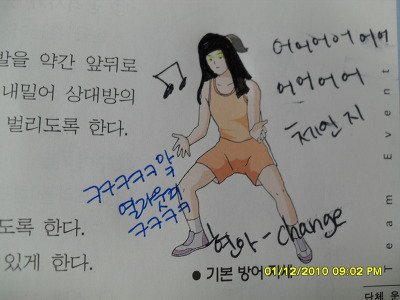 발을 약간 앞뒤로
내밀어 상대방의
벌리도록 한다.
어어어어 어어
어어어어
체인지
ㅋㅋㅋㅋㅋ악
열라웃겨
ㅋㅋㅋㅋ
현아 - change
도록 한다.
있게 한다.
● 기본 방어
01/12/2010 09:02 PM
Team Event
단체 운